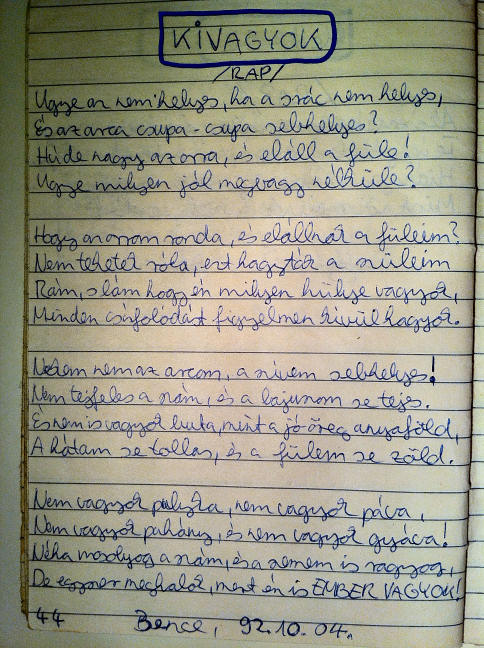 KIVAGYOK
/RAP/
Ugye az nem helyes, ha a srác nem helyes,
És az arca csupa-csupa sebhelyes?
Hú de nagy az orra, és eláll a füle!
Ugye milyen jól megvagy nélküle?
Hogy az orrom ronda, és elállnak a füleim?
Nem tehetek róla, ezt hagyták a szüleim
Rám, s lám hogy én milyen hülye vagyok,
Minden csúfolódást figyelmen kívül hagyok.
Nekem nem az arcom, a szívem sebhelyes!
Nem tejfeles a szám, és a bajuszom se tejes.
És nem is vagyok buta, mint a jó öreg anyaföld,
A hátam se tollas, és a fülem se zöld.
Nem vagyok pulyka, nem vagyok páva,
Nem vagyok puhány, és nem vagyok gyáva!
Néha mosolyog a szám, és a szemem is ragyog,
De egyszer meghalok, mert én is EMBER VAGYOK!
44 Bence, 92.10.04.